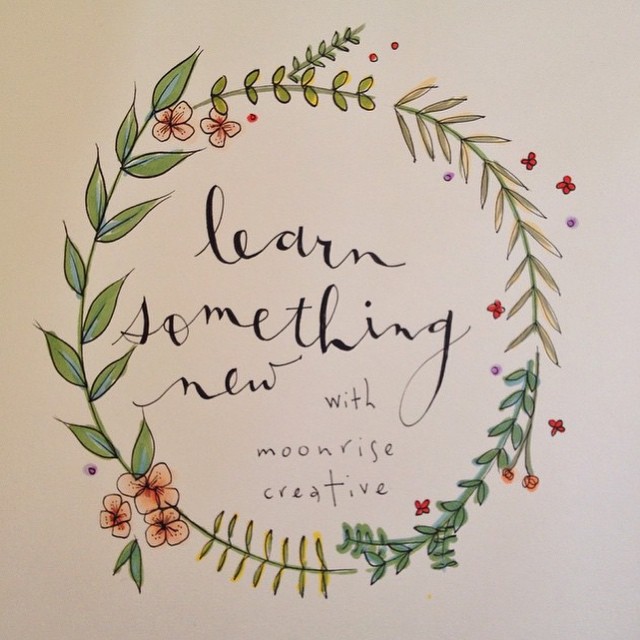 learn
something
new with
moonrise
creative